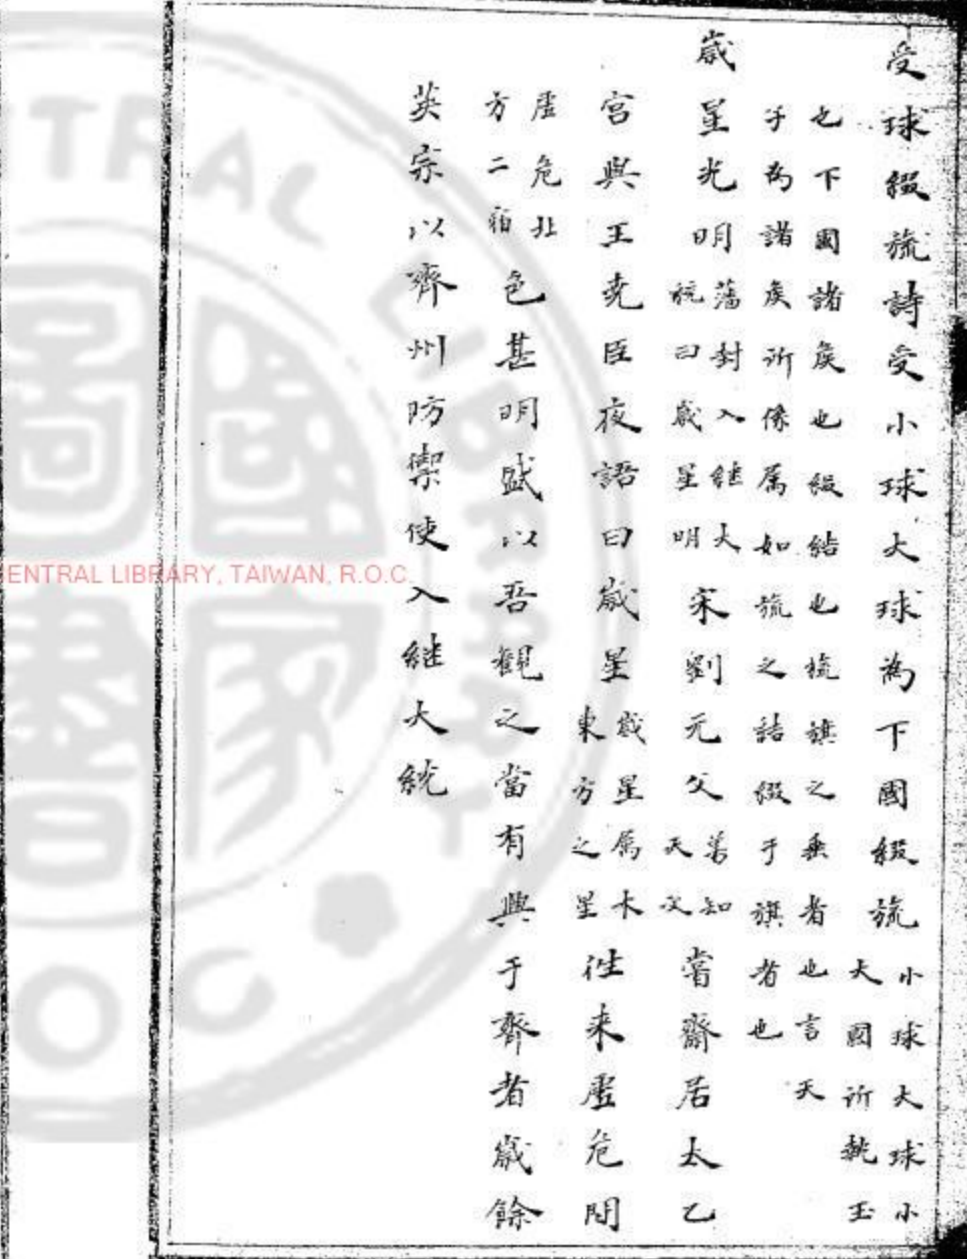 受球綴旒詩受小球大球為下國綴旒小球大球小大國所執玉
也下國諸侯也綴結也旒旗之垂者也言天子為諸侯所係属如旒之結綴于旗者也
歲星光明藩封入継大統曰歲星明宋劉元父善知天文嘗齋居太乙
宮與王尭臣夜語曰歲星歲星属木東方之星徃来虛危間
虛危北方二宿色甚明盛以吾觀之當有興于齊者歲餘
英宗以齊州防禦使入継大統
CENTRAL LIBRARY, TAIWAN, R.O.C.